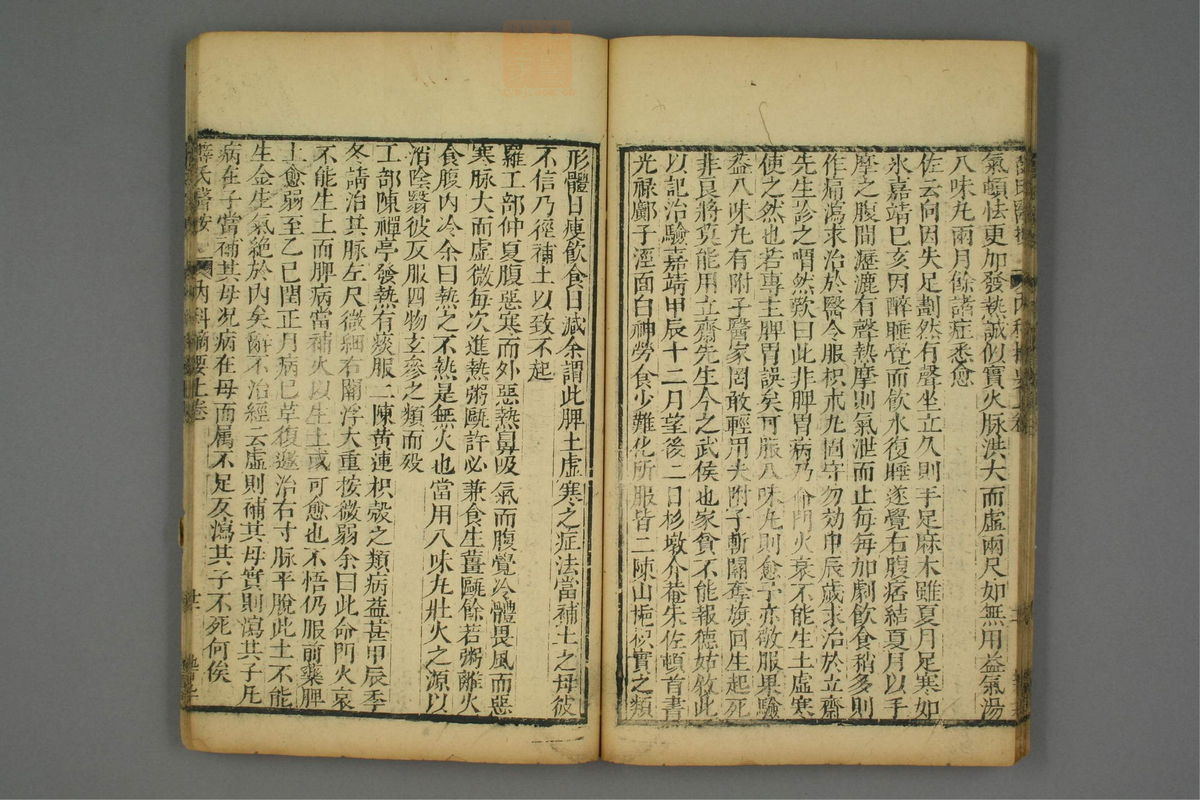 氣頓怯更加發熱誠似實火脉洪大而虛兩尺如無用益氣湯
八味丸兩月餘諸症悉愈
佐云向因失足劃然有聲坐立久則手足麻木雖夏月足寒如
氷嘉靖已亥因醉睡覺而飲水復睡遂覺右腹痞結夏月以手
摩之腹間瀝漉有聲熱摩則氣泄而止每每加劇飲食稍多則
作痛瀉求治於醫令服枳朮丸固守勿効甲辰歲求治於立齋
先生診之喟然歎曰此非脾胃病乃命門火衰不能生土虛寒
使之然也若專主脾胃誤矣可服八味丸則愈予亦敬服果驗
盖八味丸有附子醫家罔敢輕用夫附子斬關奪旗回生起死
非良將莫能用立齋先生今之武侯也家貧不能報德姑敘此
以記治驗嘉靖甲辰十二月望後二日杉墩介菴朱佐頓首書
光祿鄺子涇面白神勞食少難化所服皆二陳山梔枳實之類
形體日瘦飲食日减余謂此脾土虛寒之症法當補土之母彼
不信乃徑補土以致不起
羅工部仲夏腹惡寒而外惡熱鼻吸氣而腹覺冷體畏風而惡
寒脉大而虛微每次進熱粥甌許必兼食生薑甌餘若粥離火
食腹内冷余曰熱之不熱是無火也當用八味丸壯火之源以
消陰翳彼反服四物玄參之類而殁
工部陳禪亭發熱有痰服二陳黃連枳殼之類病益甚甲辰季
冬請治其脉左尺微細右關浮大重按微弱余曰此命門火衰
不能生土而脾病當補火以生土或可愈也不悟仍服前藥脾
土愈弱至乙已閏正月病已草復邀治右寸脉平脫此土不能
生金生氣絶於内矣辭不治經云虛則補其母實則瀉其子凡
病在子當補其母况病在母而属不足反瀉其子不死何俟
薛氏醫按 内科摘要上卷